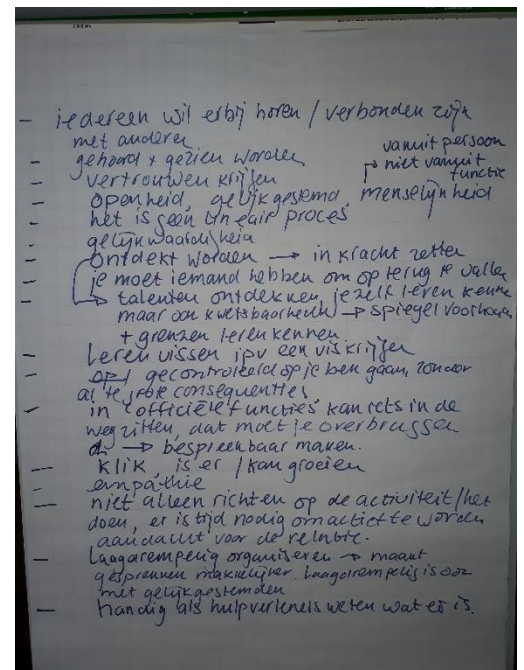 - iedereen wil erbij horen / verbonden zijn
met anderen
- gehoord + gezien worden
vanuit persoon
→ niet vanuit
functie
- vertrouwen krijgen
- openheid, gelijkgestemd, menselijkheid
- het is geen lineair proces
- gelijkwaardigheid
- ontdekt worden → in kracht zetten
- je moet iemand hebben om op terug te vallen
- → talenten ontdekken, jezelf leren kennen
maar ook kwetsbaarheden → spiegel voorhouden
+ grenzen leren kennen
- Leren vissen ipv een vis krijgen
- gecontroleerd op je bek gaan, zonder
al te grote consequenties
- in 'officiële functies' kan iets in de
weg zitten, dat moet je overbruggen
→ bespreekbaar maken.
- klik, is er / kan groeien
- empathie
- niet alleen richten op de activiteit/het
doen, er is tijd nodig om actief te worden
aandacht voor de relatie.
- Laagdrempelig organiseren → maakt
gesprekken makkelijker. Laagdrempelig is ook
met gelijkgestemden
- handig als hulpverleners weten wat er is.